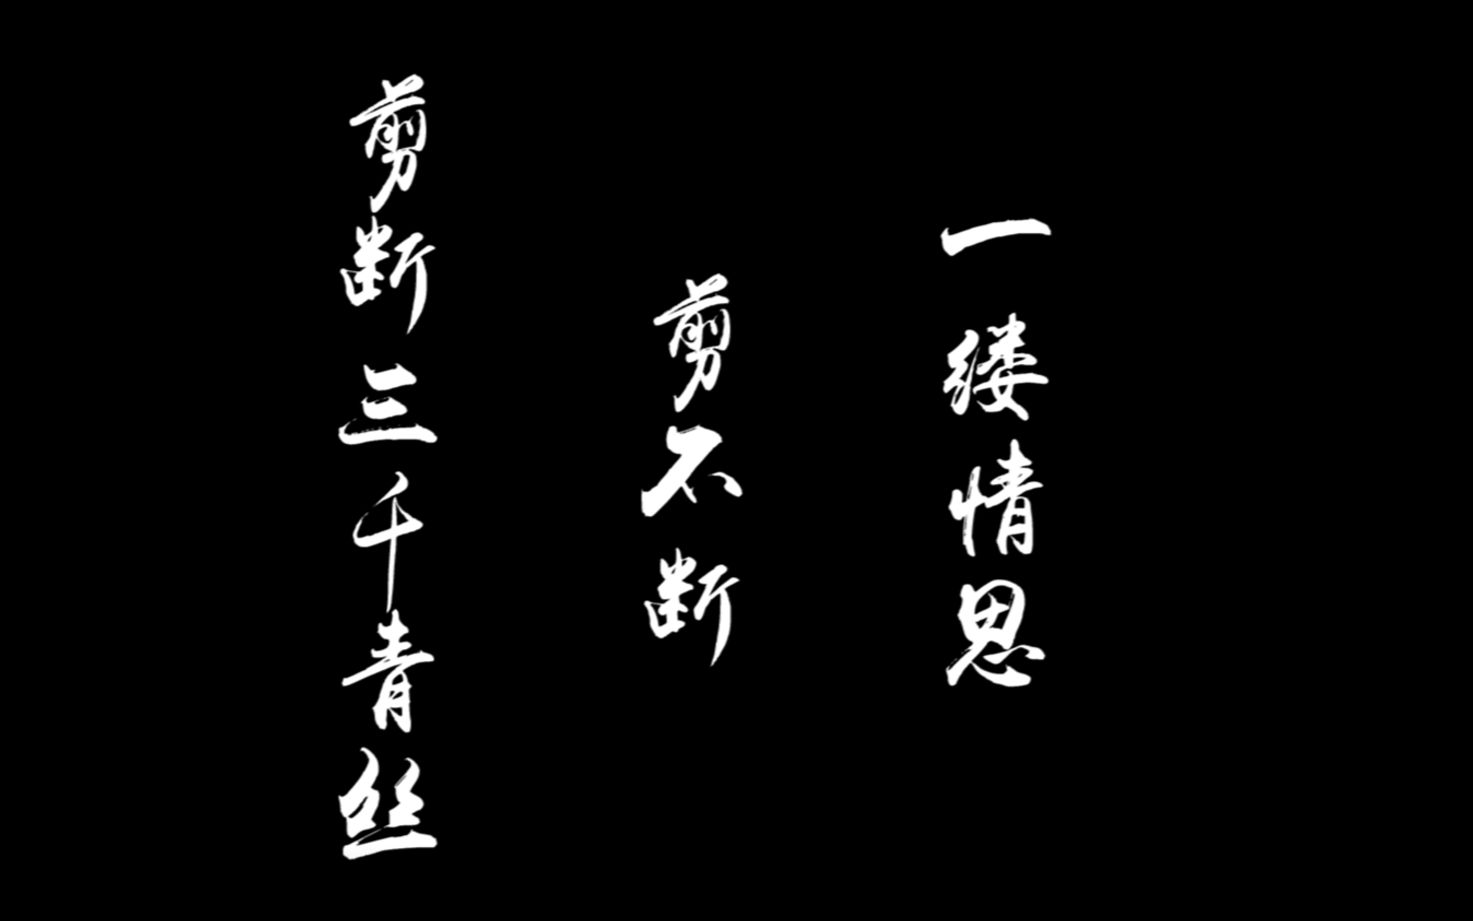 剪断三千青丝
剪不断
一缕情思